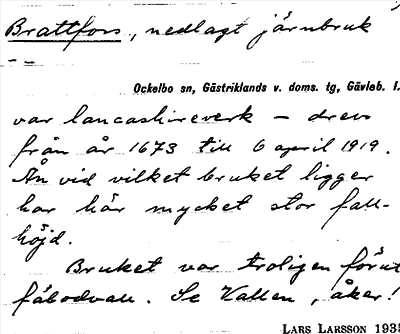 Brattfors, nedlagt järnbruk
Ockelbo sn, Gästriklands v. doms. tg, Gävleb. l.
var lancashireverk – drevs
från år 1673 till 6 april 1919.
Ån vid vilket bruket ligger
har här mycket stor fall-
höjd.
Bruket var troligen förut
fäbodvall. Se Vallen, åker!
LARS LARSSON 193